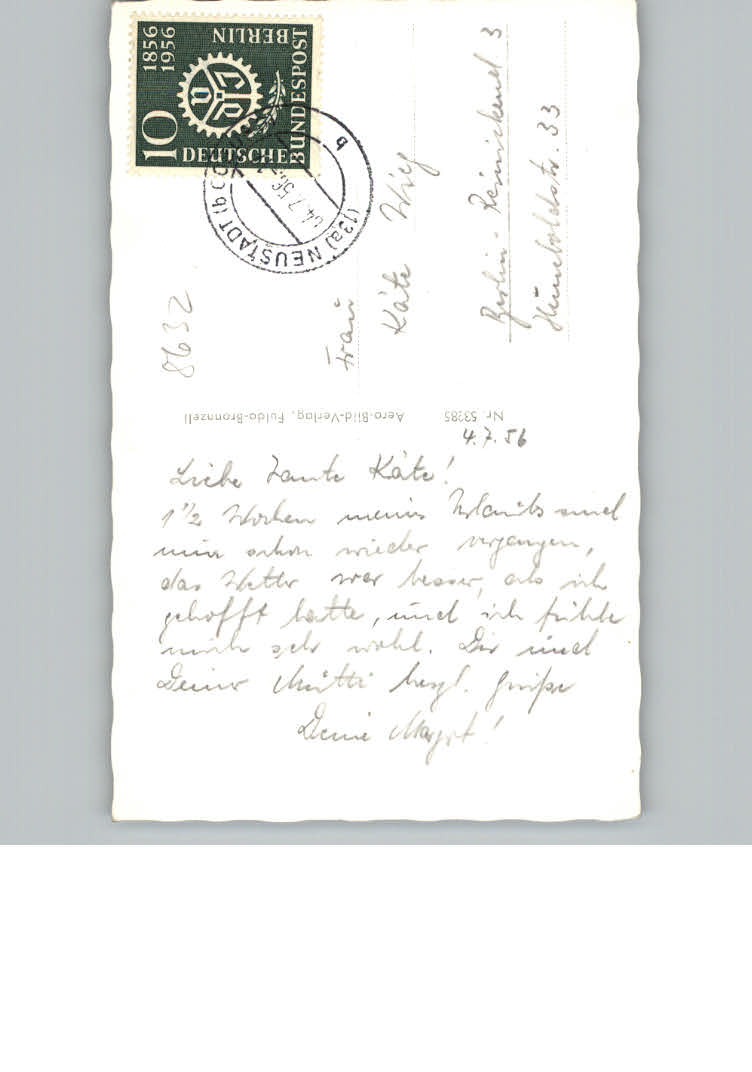 4.7.56
Liebe Tante Käte!
1 1/2 Wochen meines Urlaubs sind
nun schon wieder vergangen,
das Wetter war besser, als ich
gehofft hatte, und ich fühle
mich sehr wohl. Dir und
Deiner Mutti herzl. Grüße
Deine Margot!
Nr. 53285 Aero-Bild-Verlag, Fulda-Bronnzell
8632
Frau
Käte Wieg
Berlin-Reinickend 3
Humboldtstr. 33
1856
1956
10
DEUTSCHE BUNDESPOST
BERLIN
VDI
(13a) NEUSTADT (b COBURG)
-4.7.56
b